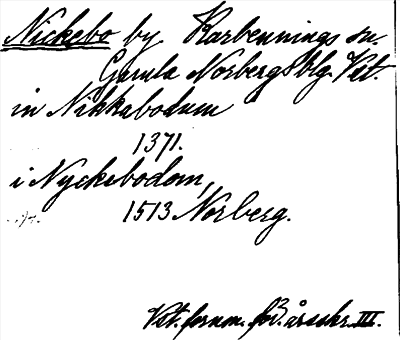 Nickebo by Karbennings sn.
Gamla Norbergs blg. Vst.
in Nikkabodum
1371.
i Nyckebodom,
1513 Norberg.
Vst. fornm. för. årsskr. III.